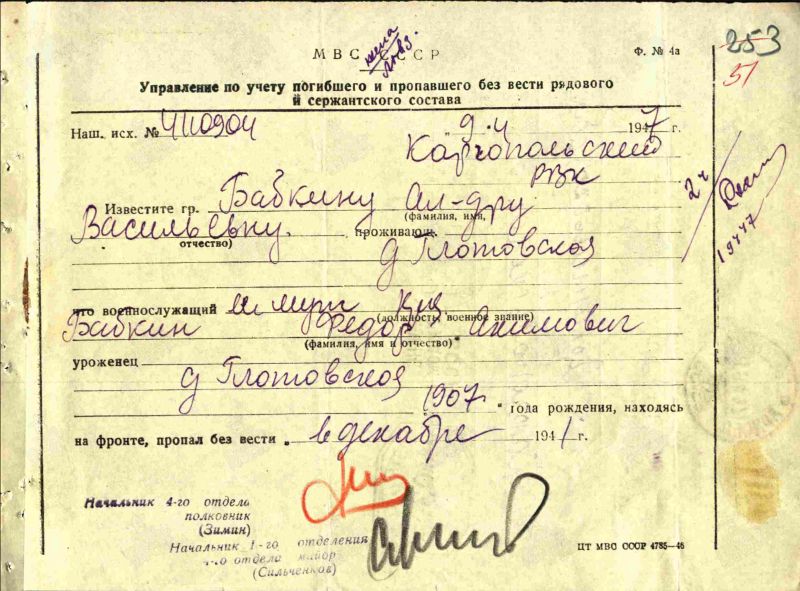 жена
МВС СССР
Ф. № 4а
253
51
Управление по учету погибшего и пропавшего без вести рядового
и сержантского состава
Наш. исх. № 4110904
9-4 1947 г.
Каргопольский
РВК
Известите гр. Бабкину Ал-дру
(фамилия, имя,
Васильевну. проживающ.
отчество)
д Глотовская
что военнослужащий муж
(должность, военное звание)
Бабкин Федор Акимович
(фамилия, имя и отчество)
уроженец
д Глотовская
1907 года рождения, находясь
на фронте, пропал без вести „ в декабре 1941 г.
Начальник 4-го отдела
полковник
(Зимин)
Начальник 1-го отделения
4-го отдела майор
(Сильченков)
ЦТ МВС СССР 4785—46
2ч
19447